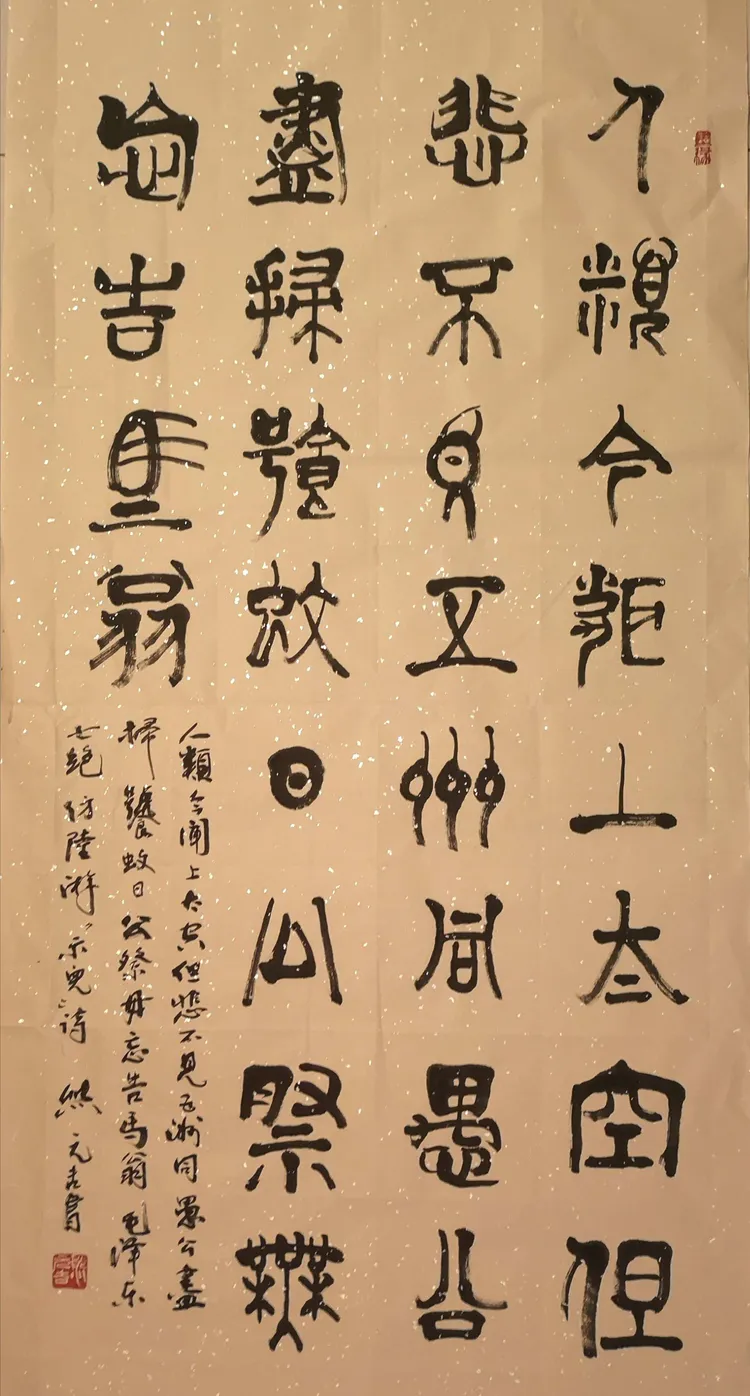 人類今上太空但
悲不見五州同愚公
盡掃饕蚊日公祭無
忘告馬翁
人類今上太空但悲不見五洲同愚公盡
掃饕蚊日公祭毋忘告馬翁 毛澤东
七绝仿陸游示兒詩 元吉書